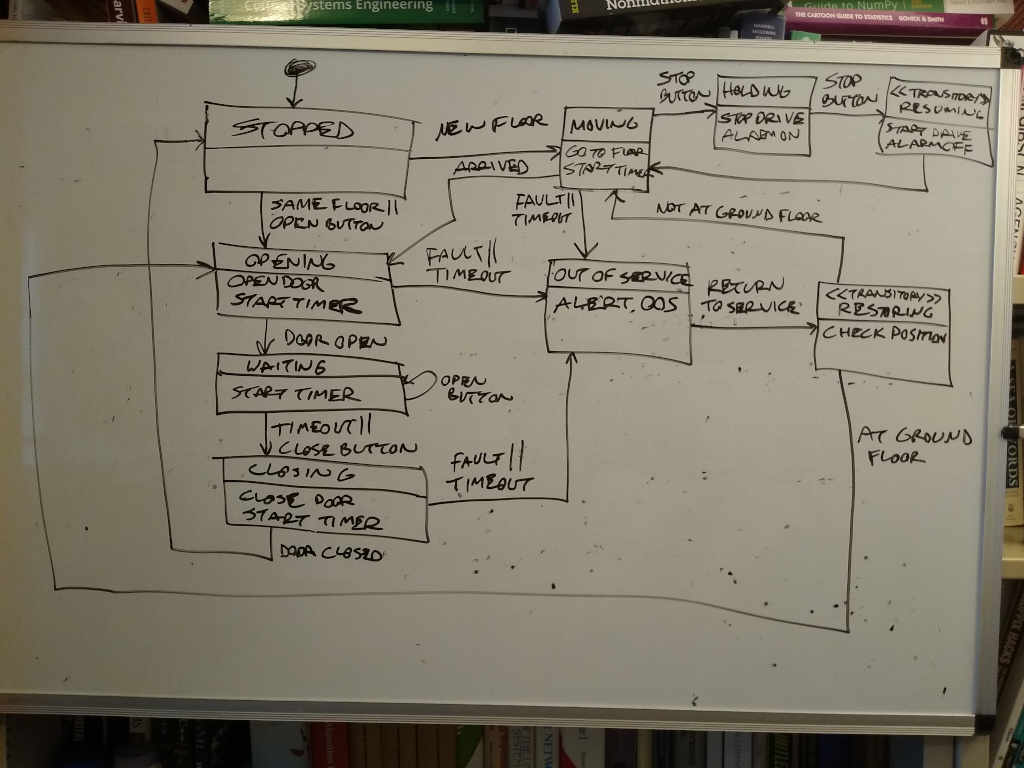 Systems Engineering
Guide to NumPy
THE CARTOON GUIDE TO STATISTICS GONICK & SMITH
STOPPED
NEW FLOOR
ARRIVED
MOVING
GO TO FLOOR
START TIMER
STOP
BUTTON
HOLDING
STOP DRIVE
ALARM ON
STOP
BUTTON
<<TRANSITORY>>
RESUMING
START DRIVE
ALARM OFF
SAME FLOOR ||
OPEN BUTTON
FAULT ||
TIMEOUT
NOT AT GROUND FLOOR
OPENING
OPEN DOOR
START TIMER
FAULT ||
TIMEOUT
OUT OF SERVICE
ALERT, OOS
RETURN
TO SERVICE
<<TRANSITORY>>
RESTORING
CHECK POSITION
DOOR OPEN
WAITING
START TIMER
OPEN
BUTTON
TIMEOUT ||
CLOSE BUTTON
CLOSING
CLOSE DOOR
START TIMER
FAULT ||
TIMEOUT
AT GROUND
FLOOR
DOOR CLOSED